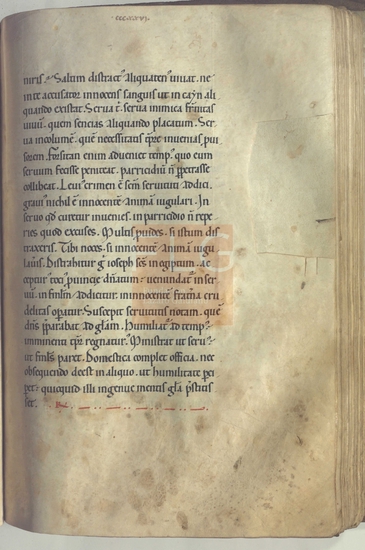 niris. Saltim distract᷑ Aliquaten᷑ uiuat. ne
in te accusator innocens sanguis ut in cayn ali
quando existat. Serua ē. serua inimica fr̄nitas
uiuū. quem sencias Aliquando placatum. Ser
ua incolumē. quē necessitatis tp̄re inuenias pui
sorem. Forsitan enim adueniet temp᷑ quo eum
seruum fecisse peniteat. parricidiū n̄ ppetrasse
collibeat. Leui᷑ crimen ē sem seruituti Addici.
graui᷑ nichil ē innocentē Animā iugulari. In
seruo qd cutetur inuenies. in parricidio n̄ repe
ries quod excuses. Multis puides. si istum dis
traxeris. Tibi noces. si innocentē Animā iugu
laueris. Distrahitur g᷑ ioseph scs in egiptum. ac
cepitur tocī puincie dn̄atum. uenundat᷑ in ser
uū. in famlm Addicitur. in innocente fratna cru
delitas opatur. Suscepit seruitutis notam. quē
dn̄s pparabat Ad glam. Humiliat᷑ Ad temp᷑.
imminenti tp̄r regnatur. Ministrat ut seru᷑.
ut famls paret. Domestica complet officia. nec
obsequendo deest in aliquo. ut humilitate pci
pet. quicquid illi ingenue mentis gla pstitis
set.